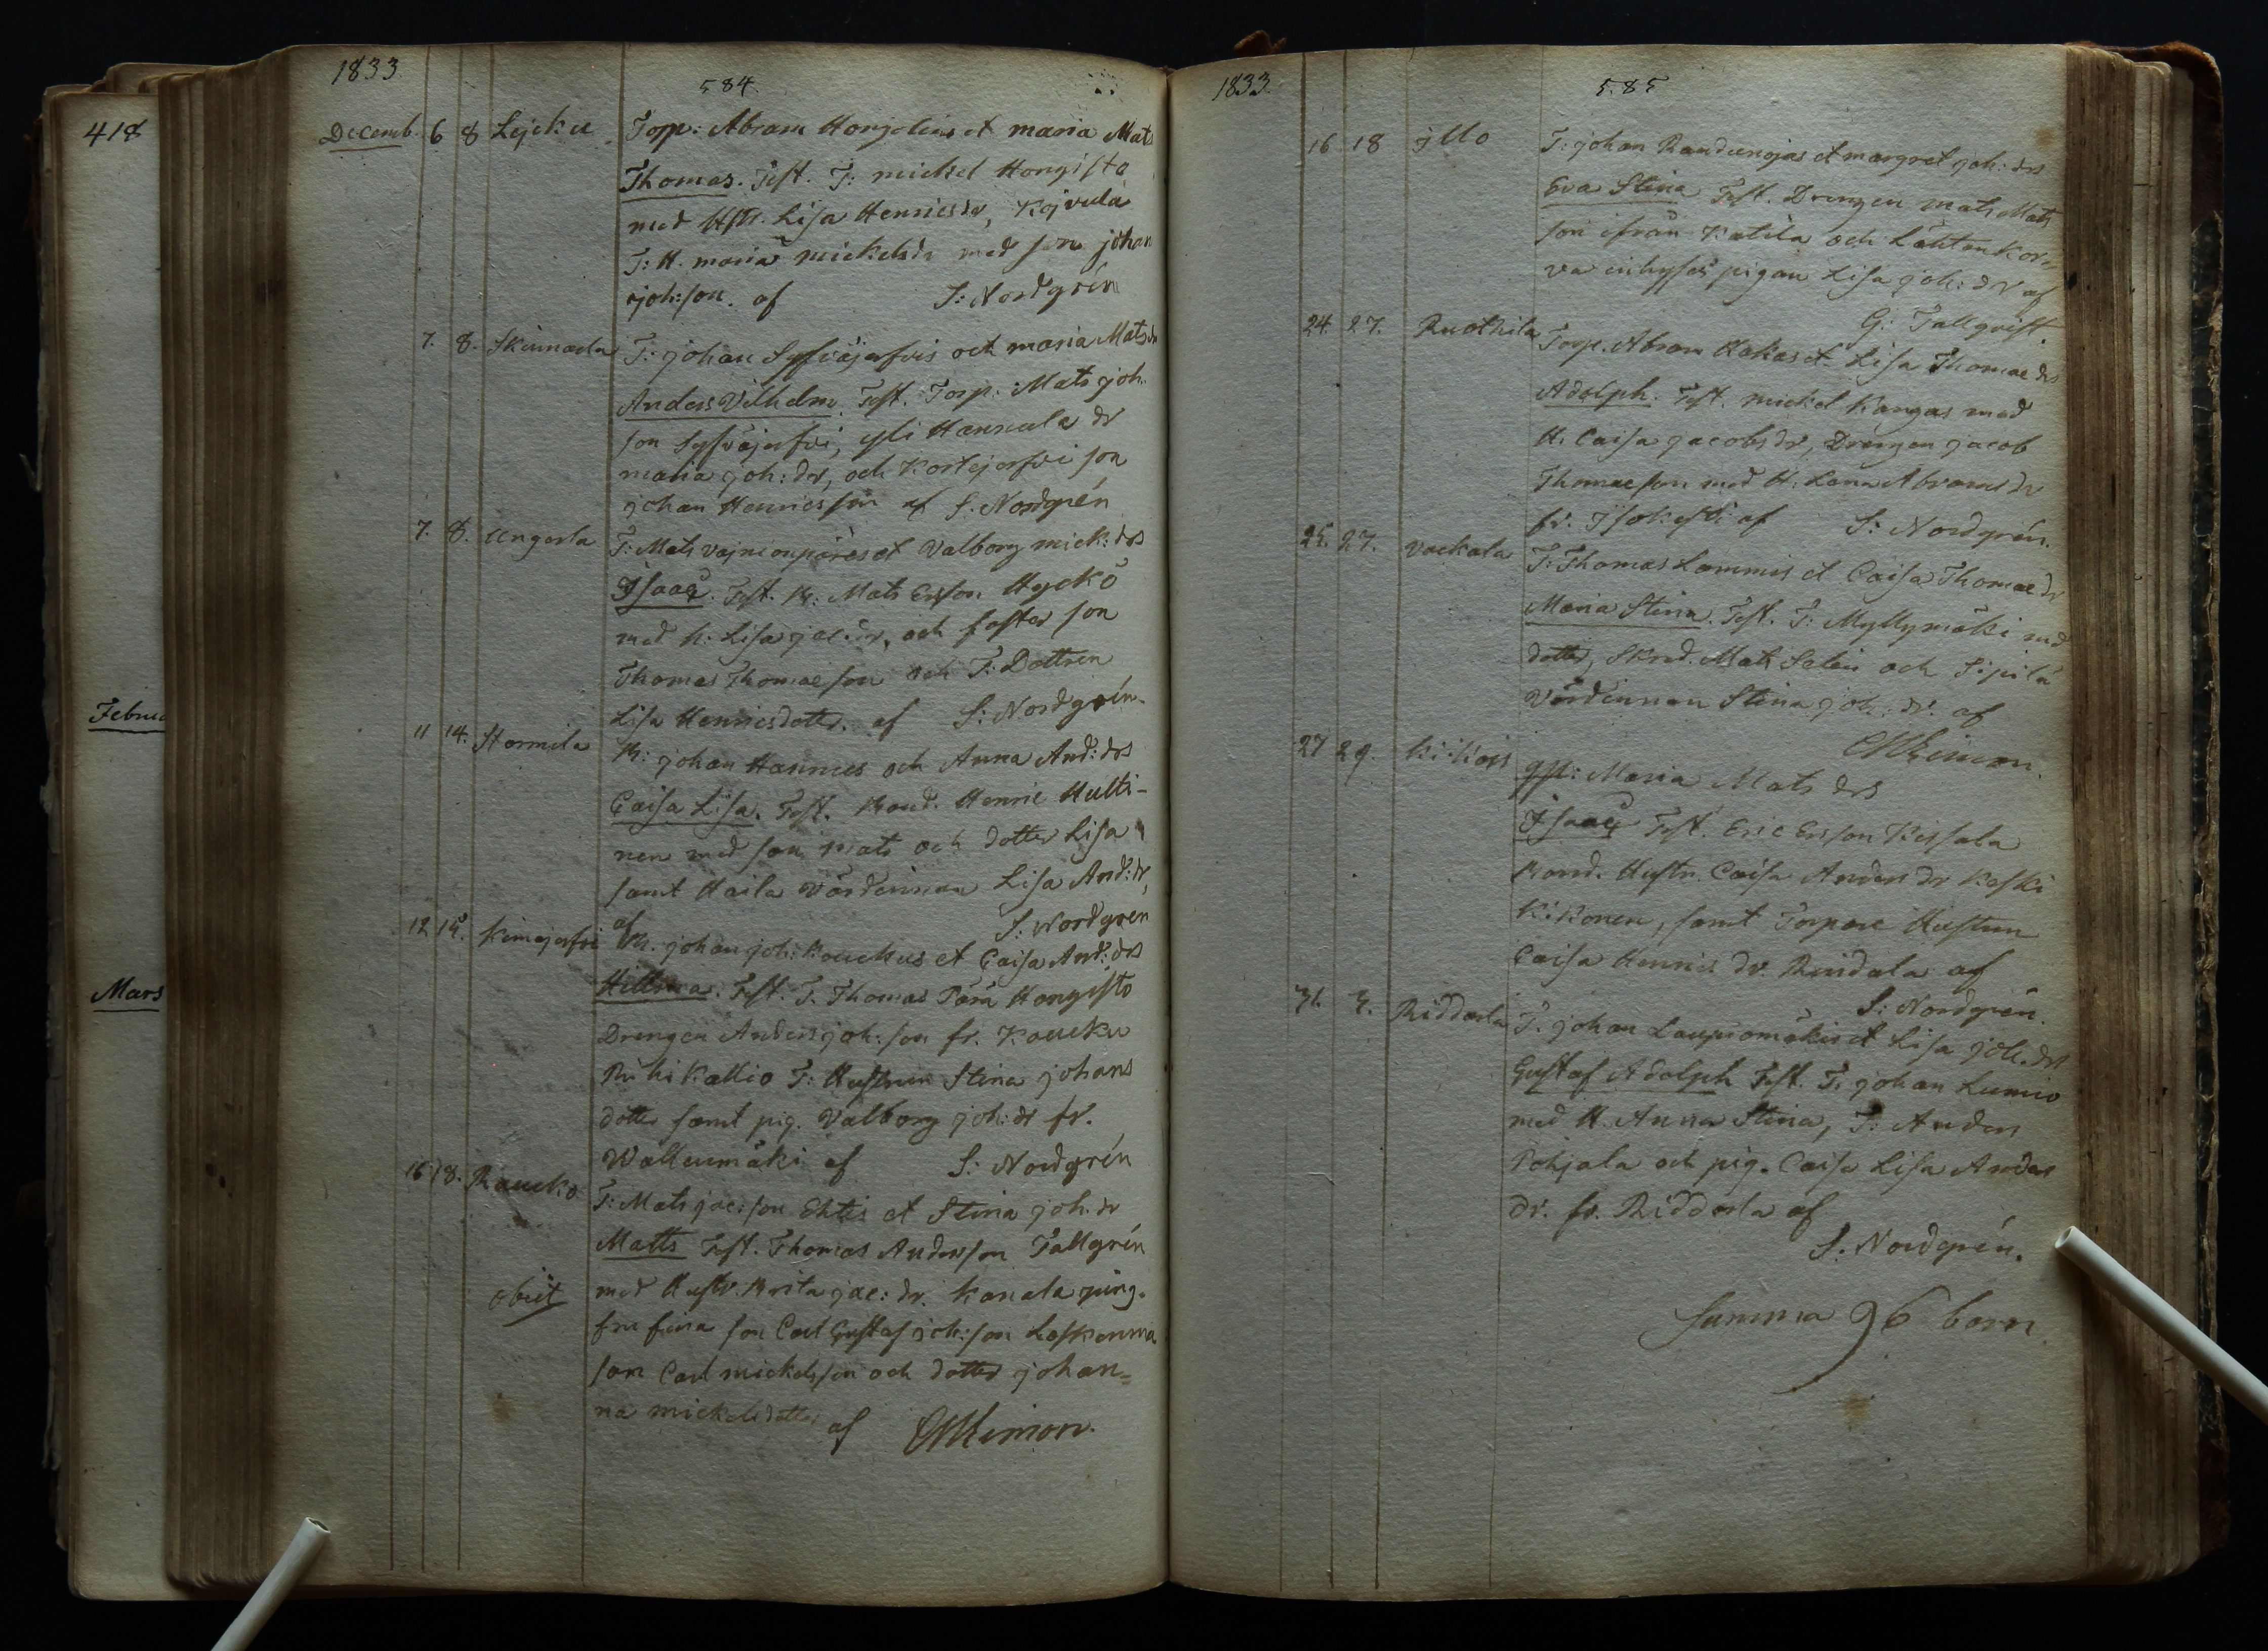 418
Februa
Mars
1833
584.
Decemb. 6 8 Lejcku Torp: Abram Honjolins et maria Mats
Thomas. Test. T: mickel Hongisto
med Hstr. Lisa Henricsdr, Kojvula
T: H. maria mickelsdr med son johan
joh:son. af S: Nordgrén
7. 8. Skinnarla T: johan Syfväjerfvis och maria Matsdr
Anders Vilhelm. Test. Torp: Mats joh.
son Syfväjerfvi, yli Hannula dr
maria joh:dr, och Kortejerfvi son
johan Henricsson af S. Nordgrén
7. 8. Ungerla T: Mats vajnionpäres et Valborg mick:drs
Isaac. Test. B: Mats Erson Hyckö
med h: Lisa jac:dr, och foster son
Thomas Thomaeson och T: Dottren
Lisa Henricsdotter. af S: Nordgrén.
11 14. Stormila B: johan Hannus och Anna And:drs
Caisa Lisa. Test. Bond. Henric Hulti-
nen med son Mats och dotter Lisa
samt Haila värdinnan Lisa And:dr,
af S: Nordgren
12 15. Kimajerfvi B. johan joh: Kouckus et Caisa And:drs
Hillma. Test. T. Thomas Pärä Hongisto
Drengen Anders joh:son fr. Koucku
Rihi Kallio T: Hustrun Stina johans
dotter samt pig. Valborg joh:dr fr.
Wallenmäki af S: Nordgrén
16 18. Raucko T: Mats jac:son Ehtis et Stina joh.dr
Matts Test. Thomas Anderson Tallgrén
obiit med Hustr. Brita jac:dr. Kanala jung.
fru fina son Carl Gustaf joh:son Leskenma
son Carl mickelsson och dotter johan=
na mickelsdotter af
1833.
585
16 18 jllo T: johan Raudanojas et margret joh:drs
Eva Stina Test. Drengen mats Mats
son ifrån Katila och Lähtenkor=
va inhyses pigan Lisa joh:dr af
G: Tallqvist.
24. 27. Ruothila Torp. Abram Hakas et Lisa Thomae drs
Adolph. Test. mickel Kangas med
H. Caisa jacobsdr, Drengen jacob
Thomaeson med H: Lena Abramsdr
fr. Isokesti af S: Nordgrén.
25. 27. vackala T: Thomas Lammis et Caisa Thomae dr
Maria Stina. Test. T: Myllymäki med
dotter, Skrd. Mats Selin och Sipilä
Värdinnan Stina joh:dr. af
27 29. Kickois qp: Maria Mats drs
Isaac Test. Eric Erson Kissala
Bond. Hustr. Caisa Anders dr Keski
Kikonen, samt Torpare Hustrun
Caisa Henrics dr. Rindala af
S: Nordgrén.
31. 3. Riddarla T. johan Laupiomäkis et Lisa joh.drs
Gustaf Adolph Test. T. johan Lumio
med H. Anna Stina, T: Anders
Pohjala och pig. Caisa Lisa Anders
dr. fr. Riddarla af
S. Nordgrén.
Summa 96 barn